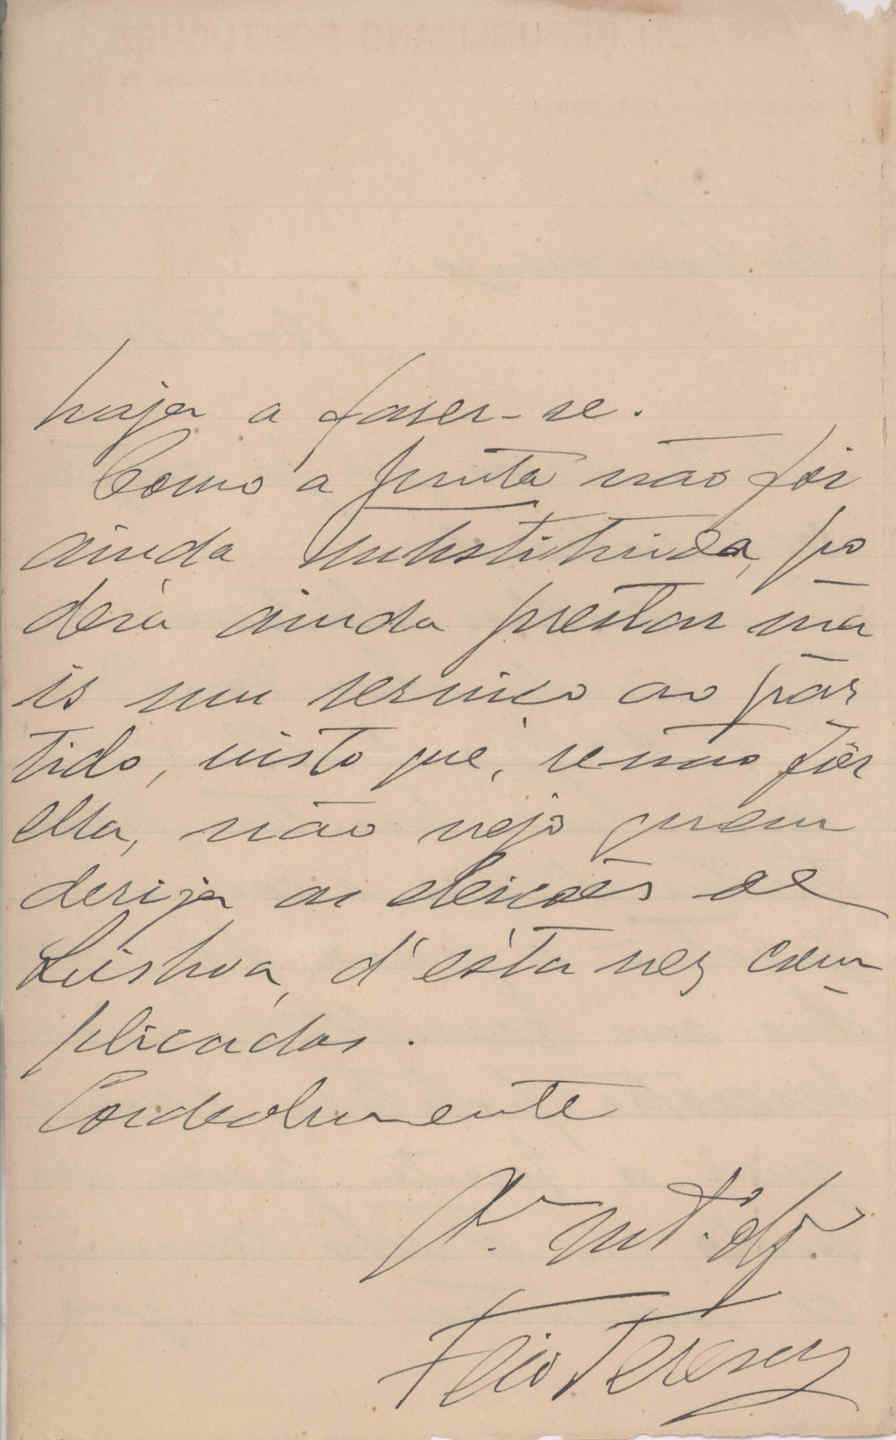 haja a faser-se.
Como a Junta não foi
ainda substituida, po
derá ainda prestar ma
is um serviço ao par
tido, visto que, se não fôr
ella, não vejo quem
derija as eleições de
Lisboa, d'ésta vez com
plicadas.
Cordealmente
At.º
Feio Terenas